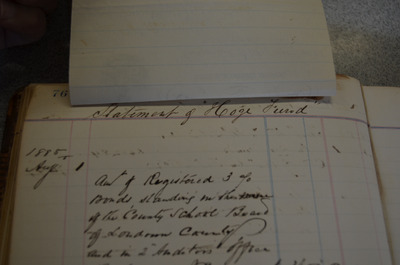 76
Statement of "Hoge Fund"
1885
Aug 1
Amt of Registered 3 %
Bonds standing in the name
of the County School Board
of Loudoun County
and in 2d Auditors office